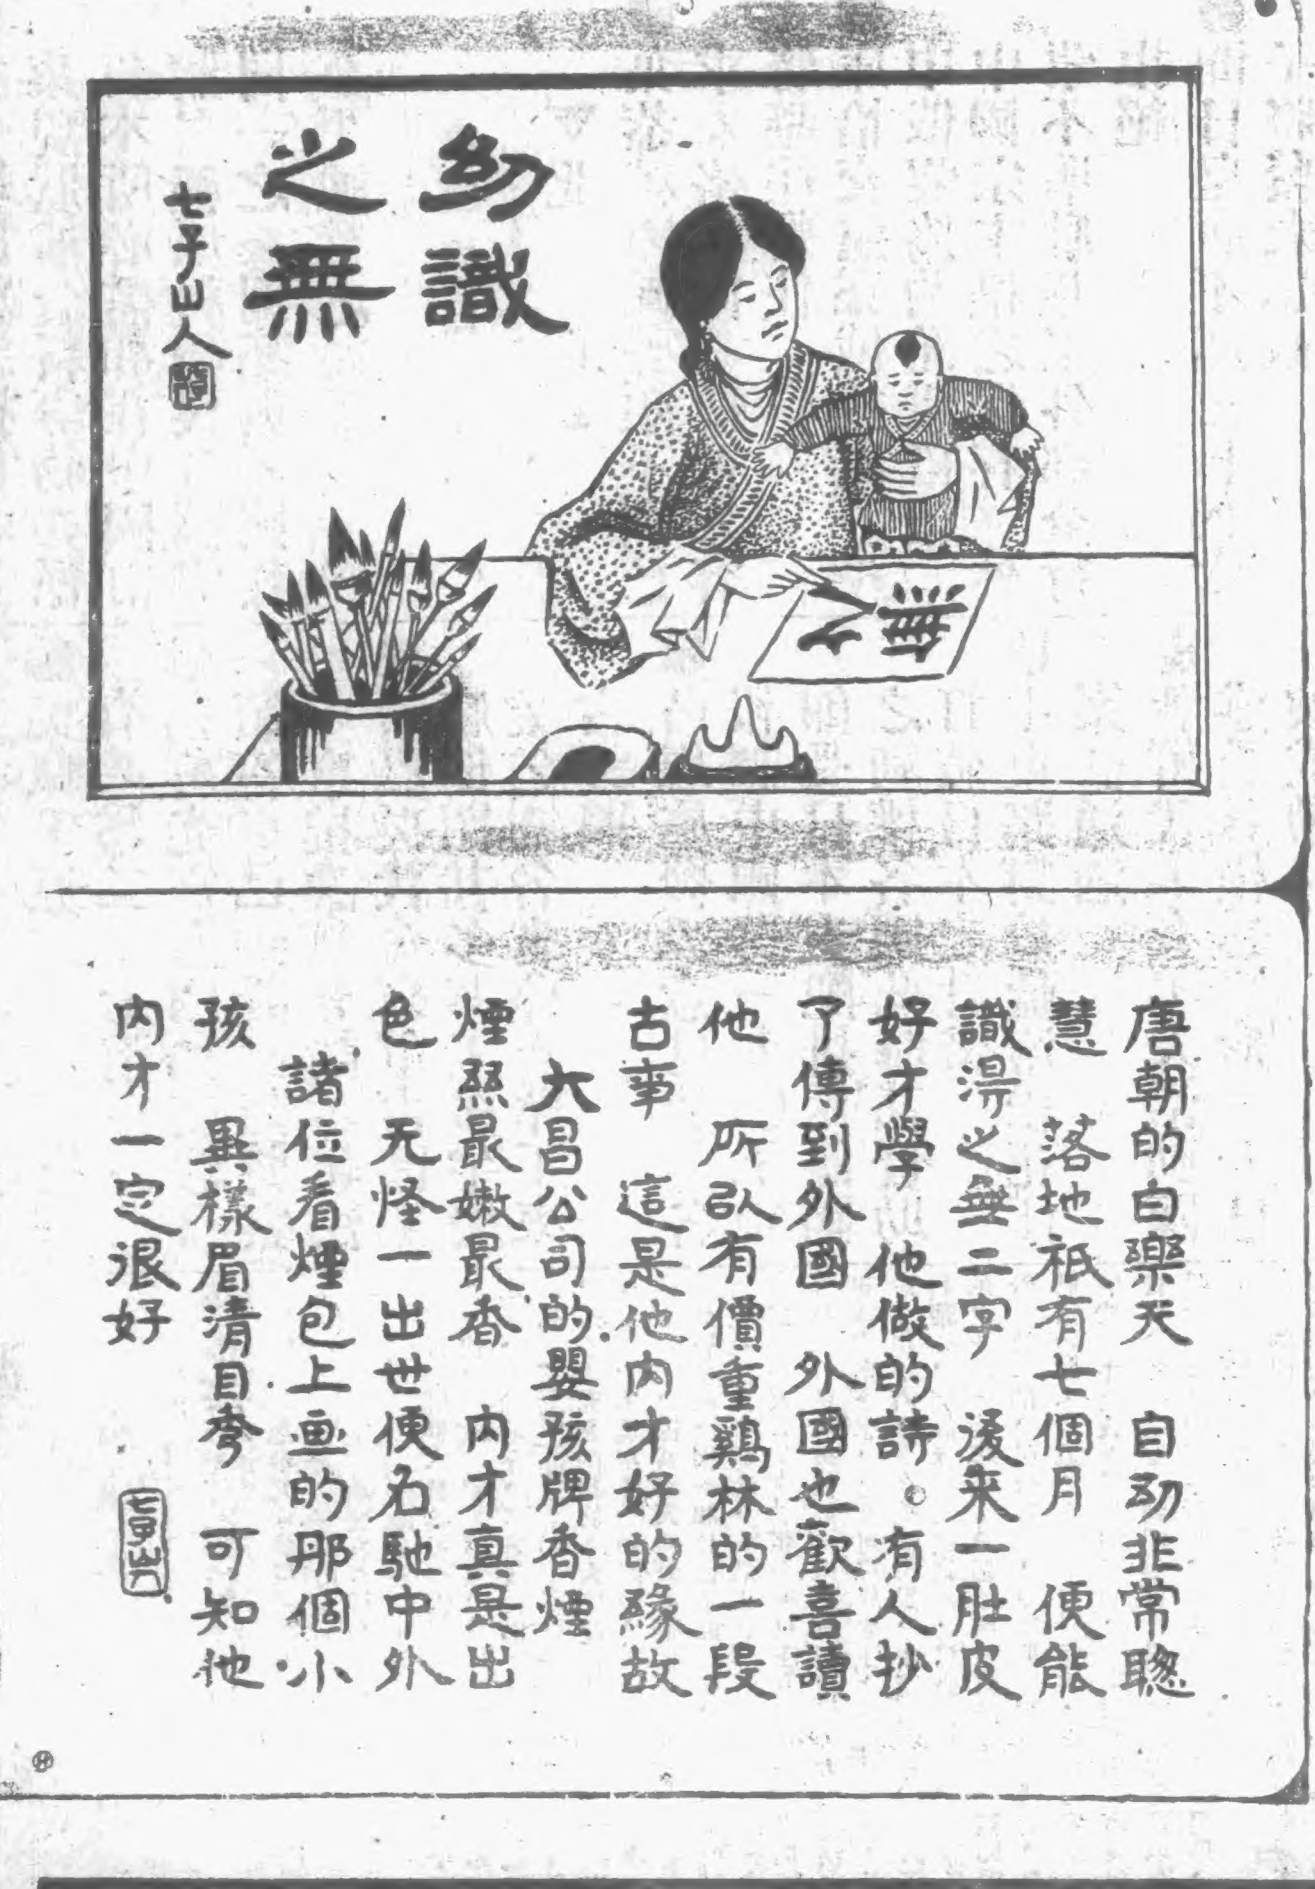 幼識
之無
七子山人
無
之
唐朝的白樂天　自幼非常聰
慧　落地祇有七個月　便能
識淂之無二字　後来一肚皮
好才學　他做的詩　有人抄
了傳到外國　外國也歡喜讀
他　所㕥有價重鷄林的一段
古事　這是他内才好的緣故
大昌公司的嬰孩牌香煙
煙絲最嫩最香　内才真是出
色　无怪一出世便名馳中外
諸位看煙包上画的那個小
孩　異樣眉清目秀　可知他
内才一定很好
七子山人